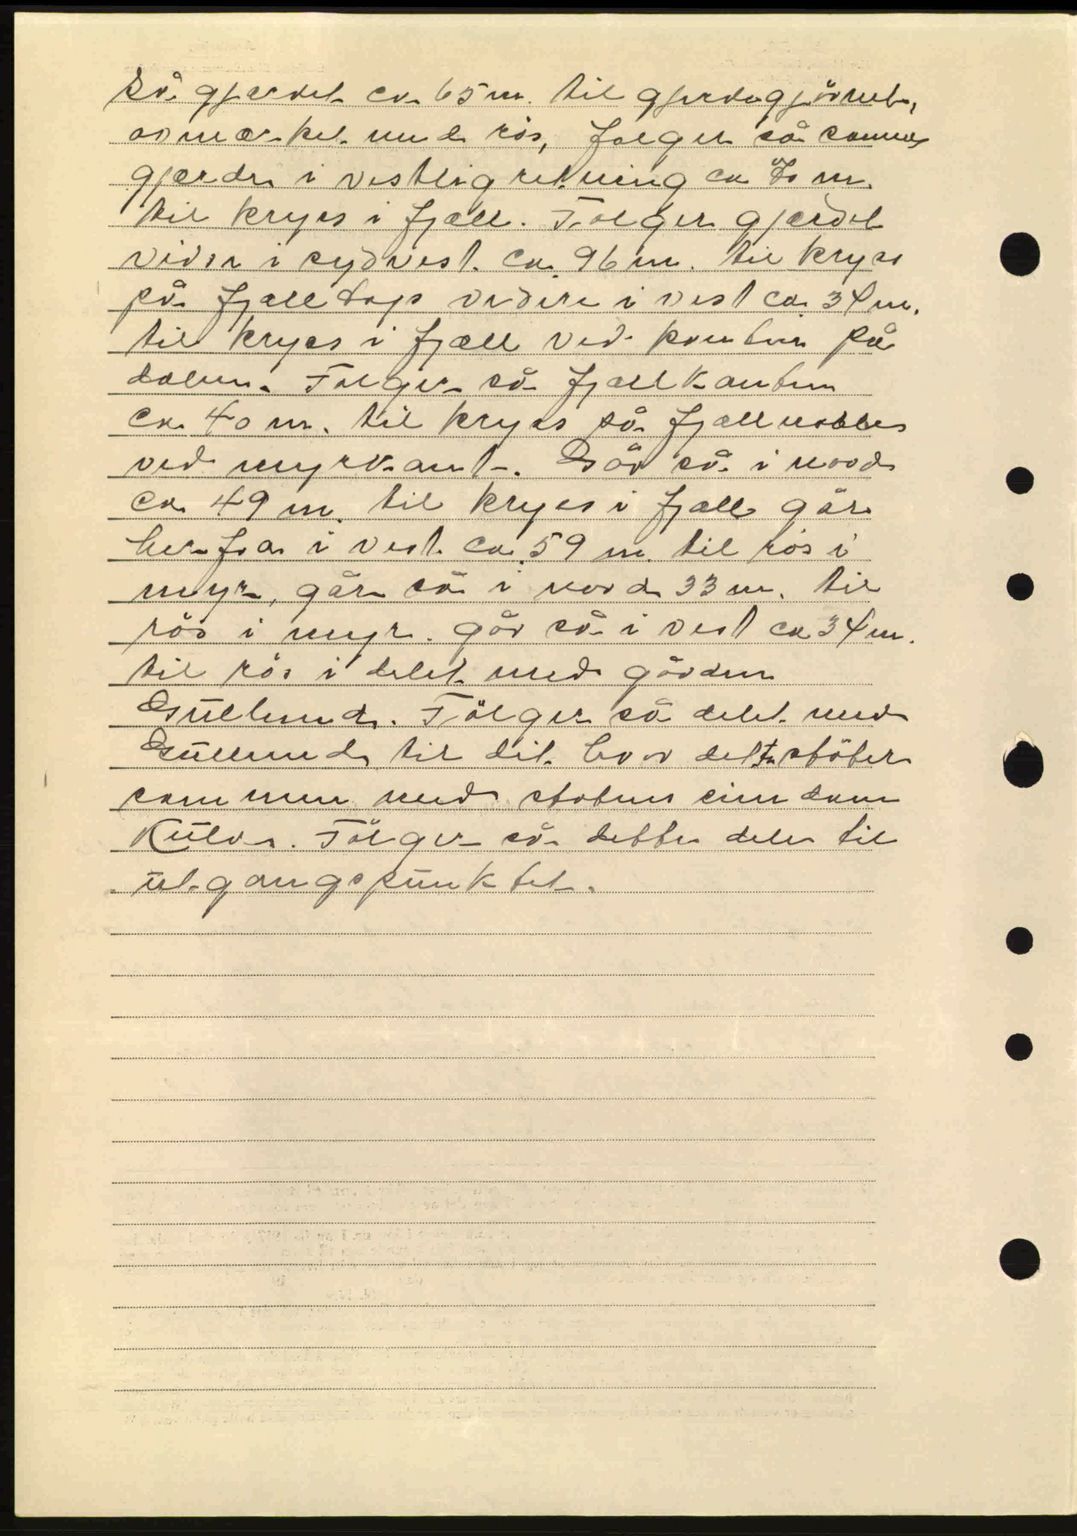 Så gjærdet ca 65 m. til gjærdegjörnet,
avmærket med rös, følger så samme
gjærde i vestlig retning ca m.
til kryss i fjæll. Følger gjærdet
vider i sydvest. ca. 96 m. til kryss
på fjælltop videre i vest ca 34 m.
til kryss i fjæll ved kanten på
dalen. Følger så fjællkanten
ca 40 m. til kryss på fjællnabben
ved myrkant. Går så i nord
ca 49 m. til kryss i fjæll går
herfra i vest. ca. 59 m. til rös i
myr, går så i nord 33 m. til
rös i myr. går så i vest ca 34 m.
til rös i delet med gården
Gullund. Fölger så delet med
Gullund til dit hvor dette stöter
sammen med statens eiendom
Følger så dette dele til
utgangspunktet.